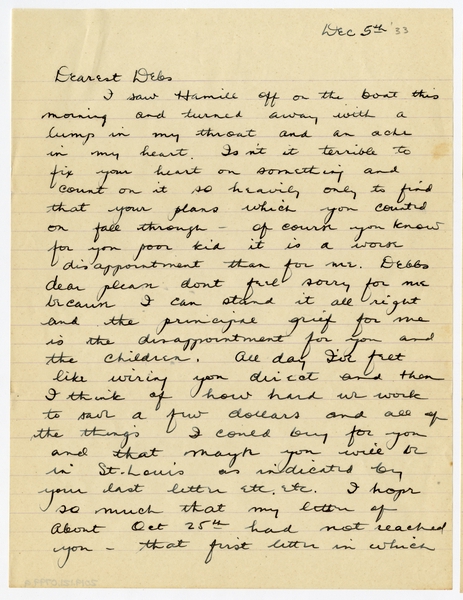 Dec 5th '33
Dearest Debs
I saw Hamill off on the boat this
morning and turned away with a
lump in my throat and an ache
in my heart. Isn't it terrible to
fix your heart on something and
count on it so heavily only to find
that your plans which you counted
on fall through - of course you know
for you poor kid it is a worse
disappointment than for me. Debbs
dear please dont feel sorry for me
because I can stand it all right
and the principal grief for me
is the disappointment for you and
the children. All day I've felt
like wiring you direct and then
I think of how hard we work
to save a few dollars and all of
the things I could buy for you
and that maybe you will be
in St. Louis as indicated by
your last letter etc. etc. I hope
so much that my letter of
About Oct 25th had not reached
you - that first letter in which